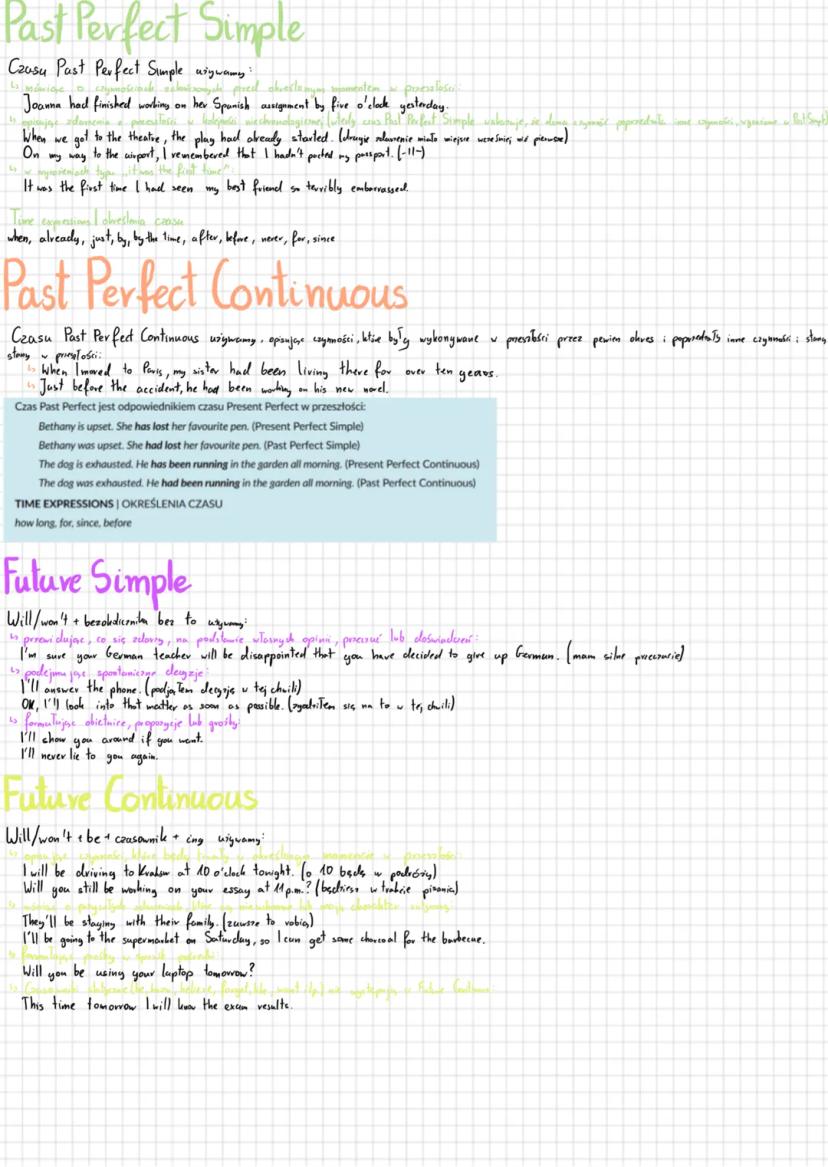 Past Perfect Simple
Czasu Past Perfect Simple używamy:
↳ mówiąc o czynnościach zakończonych przed określonym momentem w przeszłości:
Joanna had finished working on her Spanish assignment by five o'clock yesterday.
↳ opisując zdarzenia z przeszłości w kolejności niechronologicznej (wtedy czas Past Perfect Simple wskazuje, że dana czynność poprzedzała inne czynności, wyrażone w Past Simple)
When we got to the theatre, the play had already started. (drugie zdarzenie miało miejsce wcześniej niż pierwsze)
On my way to the airport, I remembered that I hadn't packed my passport. (-11-)
↳ w wyrażeniach typu „it was the first time":
It was the first time I had seen my best friend so terribly embarrassed.
Time expressions | określenia czasu
when, already, just, by, by the time, after, before, never, for, since
Past Perfect Continuous
Czasu Past Perfect Continuous używamy, opisując czynności, które były wykonywane w przeszłości przez pewien okres i poprzedzały inne czynności i stany
stany w przeszłości:
↳ When I moved to Paris, my sister had been living there for over ten years.
↳ Just before the accident, he had been working on his new novel.
Czas Past Perfect jest odpowiednikiem czasu Present Perfect w przeszłości:
Bethany is upset. She has lost her favourite pen. (Present Perfect Simple)
Bethany was upset. She had lost her favourite pen. (Past Perfect Simple)
The dog is exhausted. He has been running in the garden all morning. (Present Perfect Continuous)
The dog was exhausted. He had been running in the garden all morning. (Past Perfect Continuous)
TIME EXPRESSIONS | OKREŚLENIA CZASU
how long, for, since, before
Future Simple
Will/won't + bezokolicznik bez to używamy:
↳ przewidując, co się zdarzy, na podstawie własnych opinii, przeczuć lub doświadczeń:
I'm sure your German teacher will be disappointed that you have decided to give up German. (mam silne przeczucie)
↳ podejmując spontaniczne decyzje:
I'll answer the phone. (podjąłem decyzję w tej chwili)
OK, I'll look into that matter as soon as possible. (zgodziłem się na to w tej chwili)
↳ formułując obietnice, propozycje lub groźby:
I'll show you around if you want.
I'll never lie to you again.
Future Continuous
Will/won't + be + czasownik + ing używamy:
↳ opisując czynności, które będą trwały w określonym momencie w przyszłości:
I will be driving to Kraków at 10 o'clock tonight. (o 10 będę w podróży)
Will you still be working on your essay at 11 p.m.? (będziesz w trakcie pisania)
↳ mówiąc o przyszłych zdarzeniach, które są nieuniknione lub mają charakter rutynowy:
They'll be staying with their family. (zawsze to robią)
I'll be going to the supermarket on Saturday, so I can get some charcoal for the barbecue.
↳ formułując prośby w sposób pośredni:
Will you be using your laptop tomorrow?
↳ Czasowniki statyczne (be, know, believe, forget, like, want itp.) nie występują w Future Continuous:
This time tomorrow I will know the exam results.